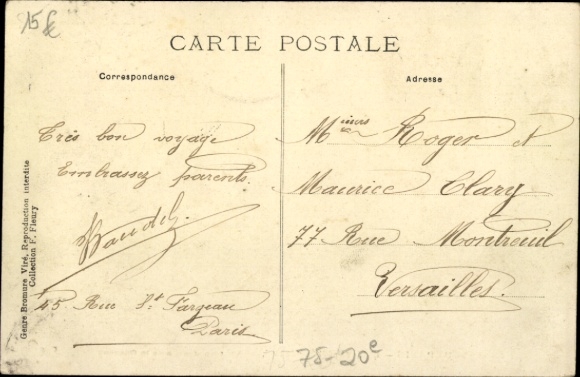 15 €
CARTE POSTALE
Correspondance
Très bon voyage
Embrassez parents.
45 Rue St Fargeau
Paris
Adresse
Mieurs Roger et
Maurice Clary
77 Rue Montreuil
Versailles.
75-20e
Genre Bromure Viré, Reproduction interdite
Collection F. Fleury